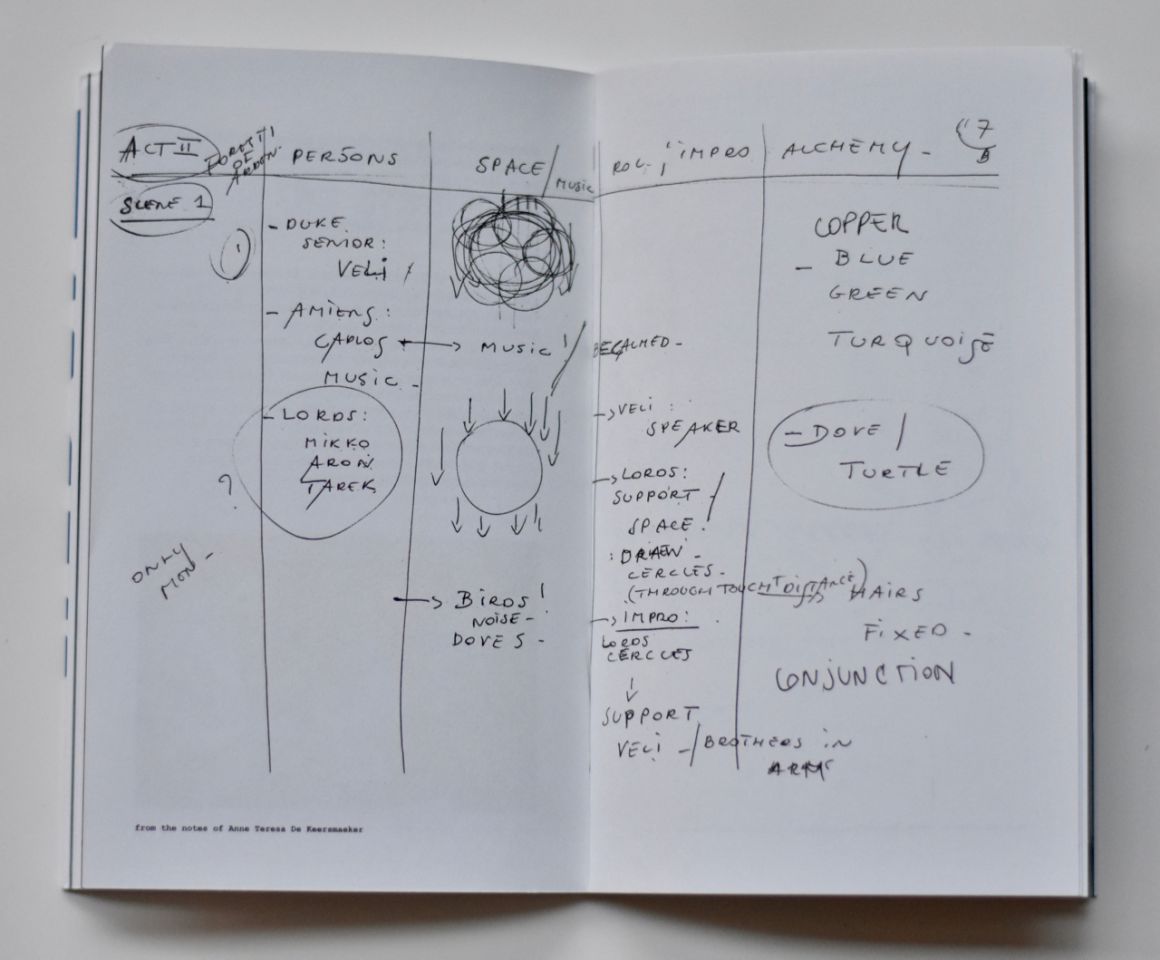 ACT II
SCENE 1
PERSONS
SPACE / MUSIC
IMPRO
ALCHEMY -
1
- DUKE
SENIOR:
VELI
- AMIENS:
CARLOS
MUSIC -
- LORDS:
MIKKO
ARON
TAREK
?
ONLY
MUSIC! / BECALMED -
BIRDS!
NOISE -
DOVES -
VELI:
SPEAKER
LORDS:
SUPPORT
SPACE!
: DRAW -
CERCLES -
(THROUGH TOUCH DISTANCE)
IMPRO:
LORDS
CERCLES
SUPPORT
VELI - / BROTHERS IN
ARMS
COPPER
- BLUE
GREEN
TURQUOISE
- DOVE /
TURTLE
HAIRS
FIXED -
CONJUNCTION
from the notes of Anne Teresa De Keersmaeker